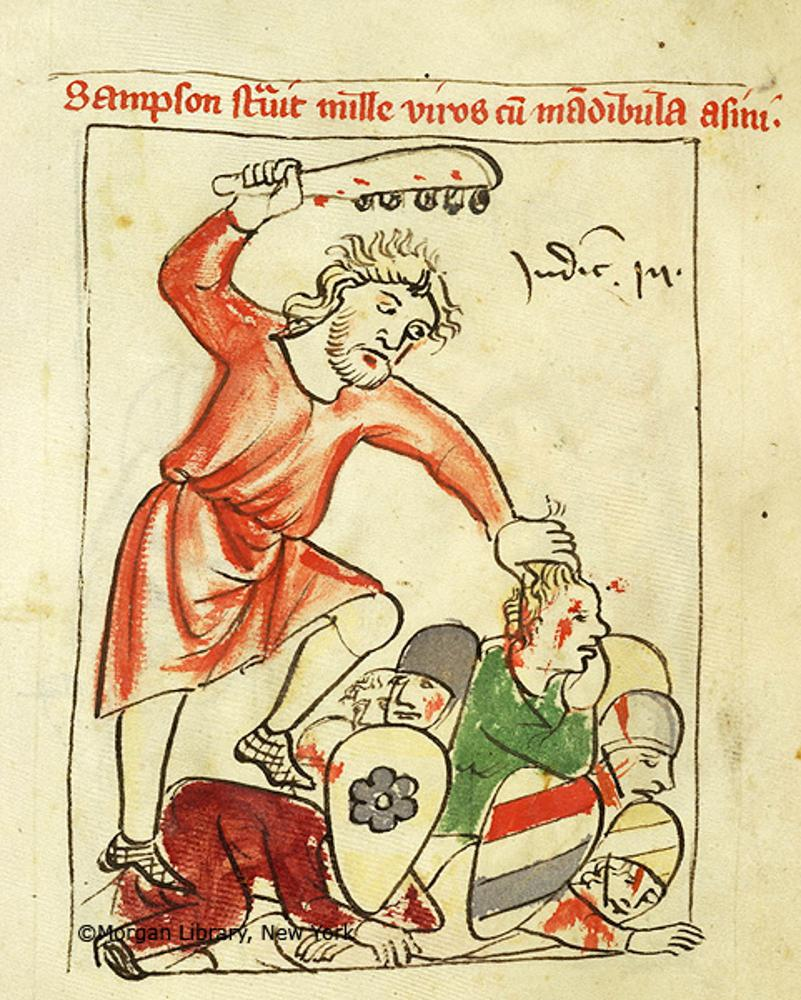 Sampson st͂uit mille viros cū mādibula asini.
Judic̄. 
©Morgan Library, New York